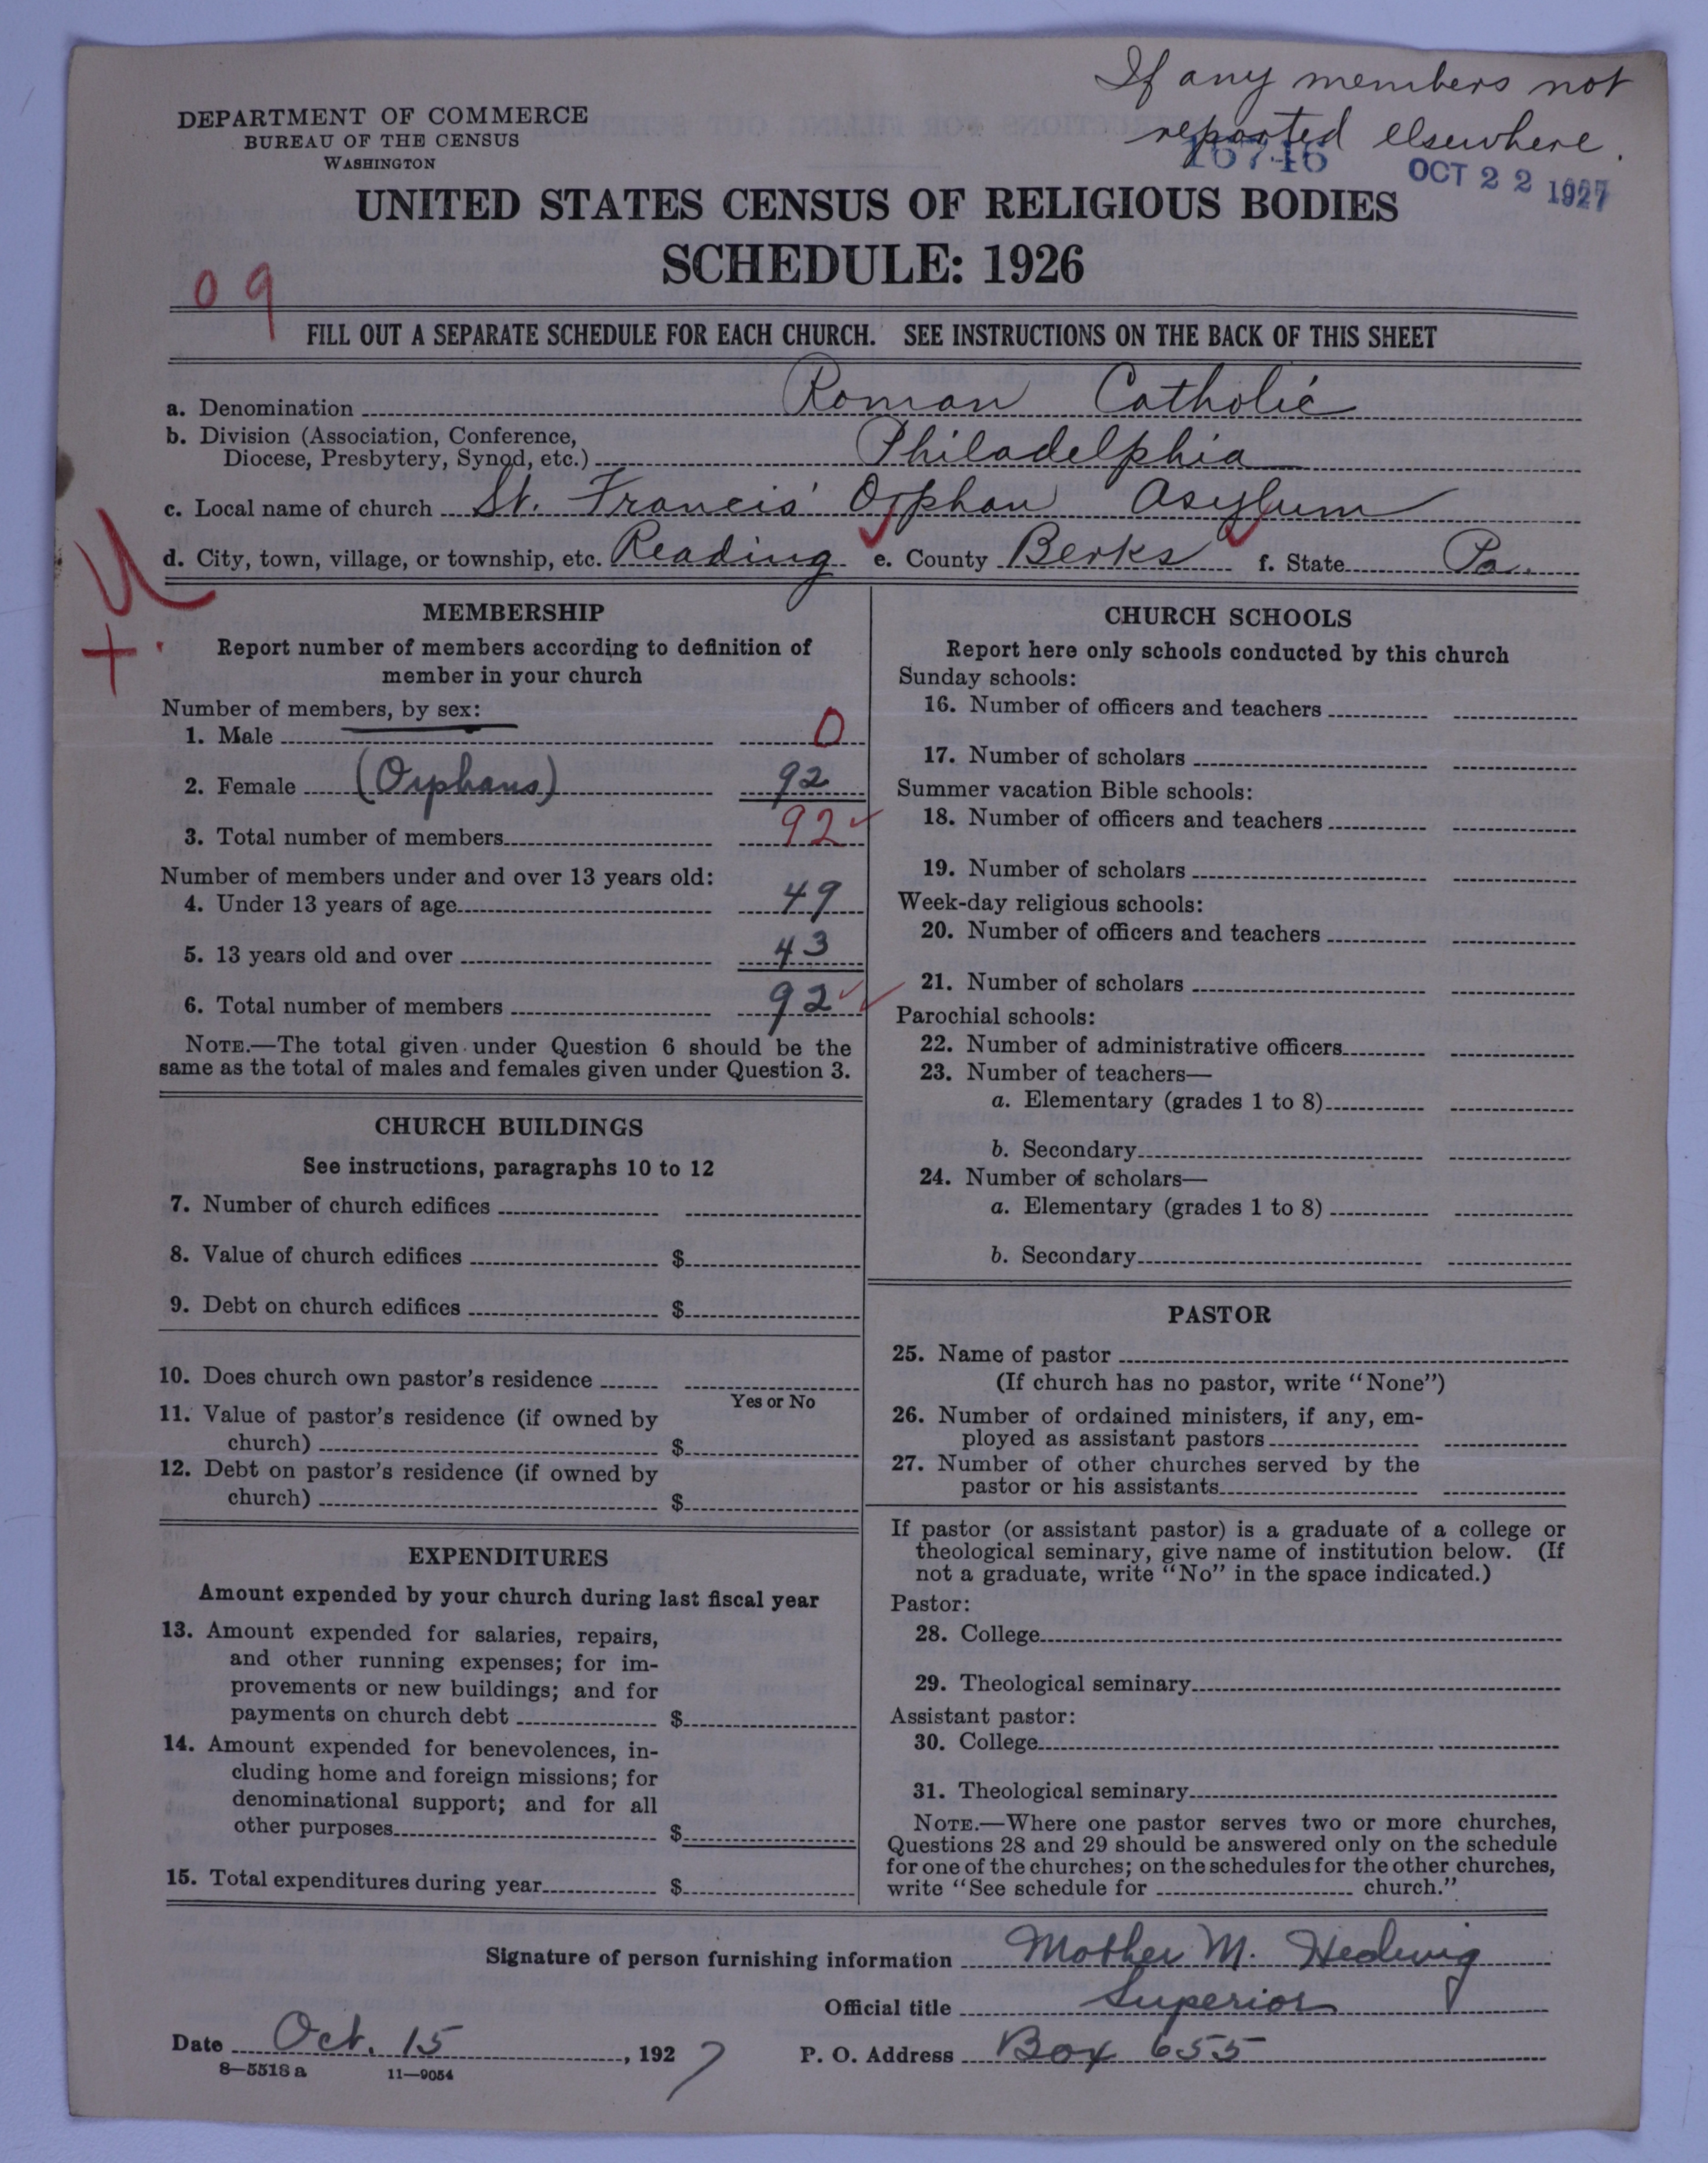 If any members not
reported elsewhere.
16746
OCT 22 1927
DEPARTMENT OF COMMERCE
BUREAU OF THE CENSUS
WASHINGTON
UNITED STATES CENSUS OF RELIGIOUS BODIES
SCHEDULE: 1926
09
FILL OUT A SEPARATE SCHEDULE FOR EACH CHURCH. SEE INSTRUCTIONS ON THE BACK OF THIS SHEET
a. Denomination Roman Catholic
b. Division (Association, Conference,
Diocese, Presbytery, Synod, etc.) Philadelphia
c. Local name of church St. Francis' Orphan Asylum
d. City, town, village, or township, etc. Reading e. County Berks f. State Pa.
MEMBERSHIP
Report number of members according to definition of
member in your church
Number of members, by sex:
1. Male 0
2. Female (Orphans) 92
3. Total number of members 92
Number of members under and over 13 years old:
4. Under 13 years of age 49
5. 13 years old and over 43
6. Total number of members 92
NOTE.—The total given under Question 6 should be the
same as the total of males and females given under Question 3.
CHURCH BUILDINGS
See instructions, paragraphs 10 to 12
7. Number of church edifices
8. Value of church edifices $
9. Debt on church edifices $
10. Does church own pastor's residence
Yes or No
11. Value of pastor's residence (if owned by
church) $
12. Debt on pastor's residence (if owned by
church) $
EXPENDITURES
Amount expended by your church during last fiscal year
13. Amount expended for salaries, repairs,
and other running expenses; for im-
provements or new buildings; and for
payments on church debt $
14. Amount expended for benevolences, in-
cluding home and foreign missions; for
denominational support; and for all
other purposes $
15. Total expenditures during year $
CHURCH SCHOOLS
Report here only schools conducted by this church
Sunday schools:
16. Number of officers and teachers
17. Number of scholars
Summer vacation Bible schools:
18. Number of officers and teachers
19. Number of scholars
Week-day religious schools:
20. Number of officers and teachers
21. Number of scholars
Parochial schools:
22. Number of administrative officers
23. Number of teachers—
a. Elementary (grades 1 to 8)
b. Secondary
24. Number of scholars—
a. Elementary (grades 1 to 8)
b. Secondary
PASTOR
25. Name of pastor
(If church has no pastor, write "None")
26. Number of ordained ministers, if any, em-
ployed as assistant pastors
27. Number of other churches served by the
pastor or his assistants
If pastor (or assistant pastor) is a graduate of a college or
theological seminary, give name of institution below. (If
not a graduate, write "No" in the space indicated.)
Pastor:
28. College
29. Theological seminary
Assistant pastor:
30. College
31. Theological seminary
NOTE.—Where one pastor serves two or more churches,
Questions 28 and 29 should be answered only on the schedule
for one of the churches; on the schedules for the other churches,
write "See schedule for church."
Signature of person furnishing information Mother M. Hedwig
Official title Superior
Date Oct. 15, 1927 P. O. Address Box 655
8—5518 a 11—9054